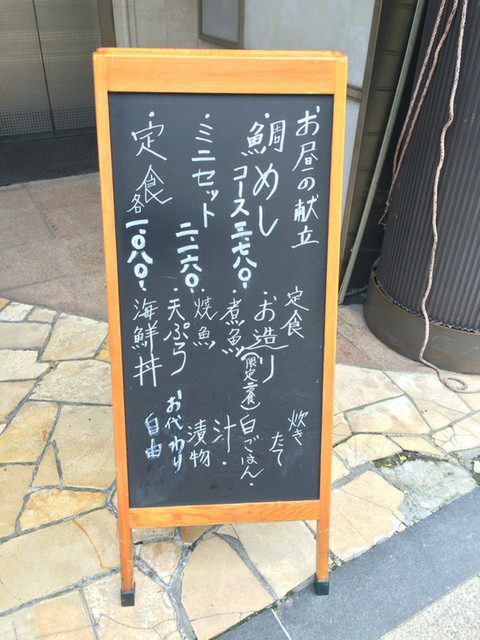 お昼の献立
・鯛めし
コース三、七八〇・
・ミニセット
二、一六〇・
・定食
各一、〇八〇・
定食
・お造り
・煮魚(限定二食)
・焼魚
・天ぷら
・海鮮丼
炊き
たて
白ごはん・
汁・
漬物
お代わり
自由